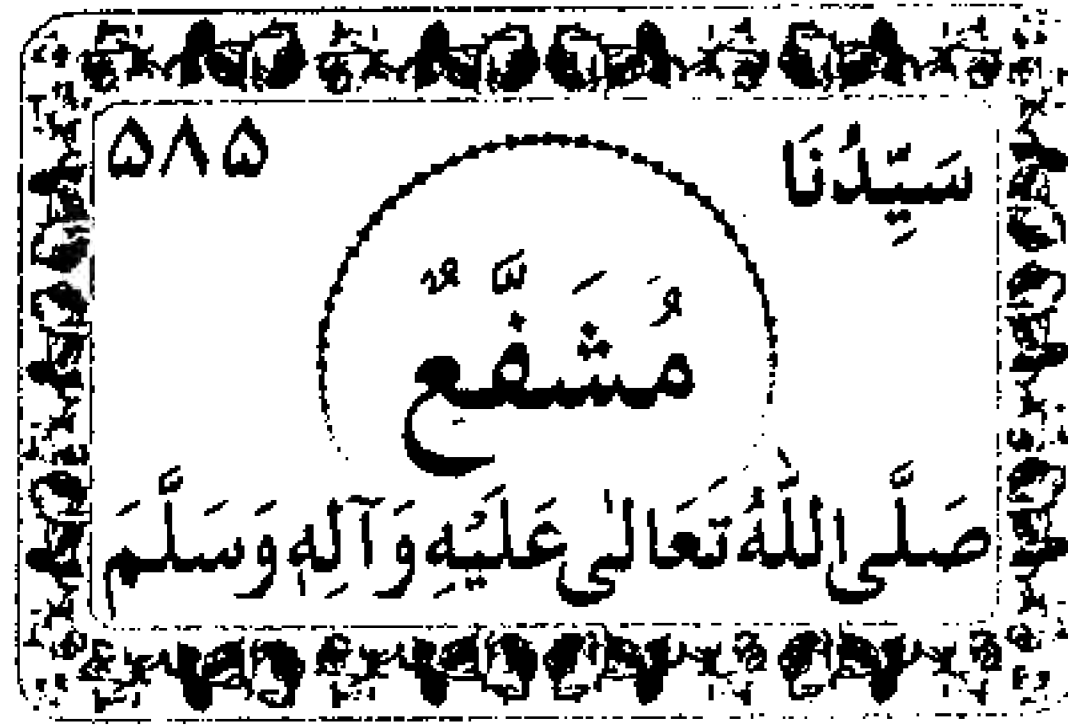 سَيِّدُنَا ۵۸۵
مُشَفَّعٌ
صَلَّى اللّٰهُ تَعَالٰى عَلَيْهِ وَآلِهٖ وَسَلَّمَ